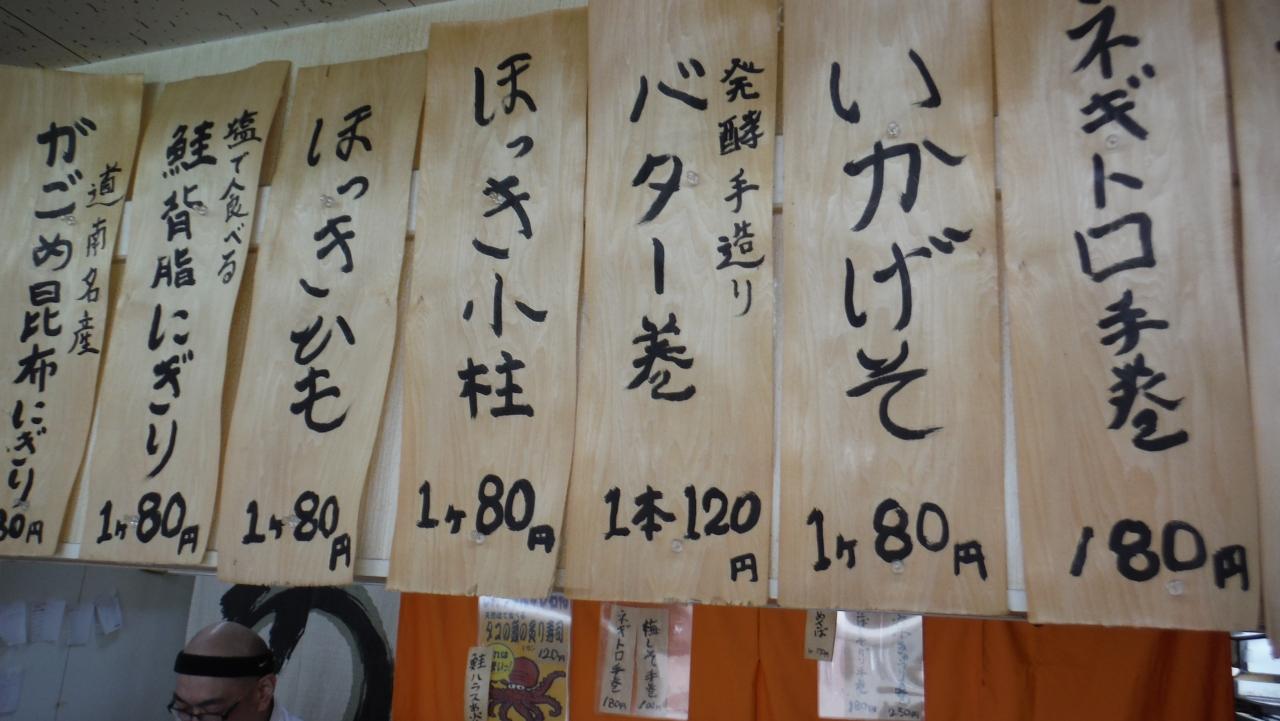 ネギトロ手巻
180円
いかげそ
1ヶ80円
発酵手造り
バター巻
1本120円
ほっき小柱
1ヶ80円
ほっきひも
1ヶ80円
塩で食べる
鮭背脂にぎり
1ヶ80円
道南名産
がごめ昆布にぎり
80円
タコの頭の炙り寿司
120円
ネギトロ手巻
180円
梅しそ手巻
100円
めさば
180円
250円